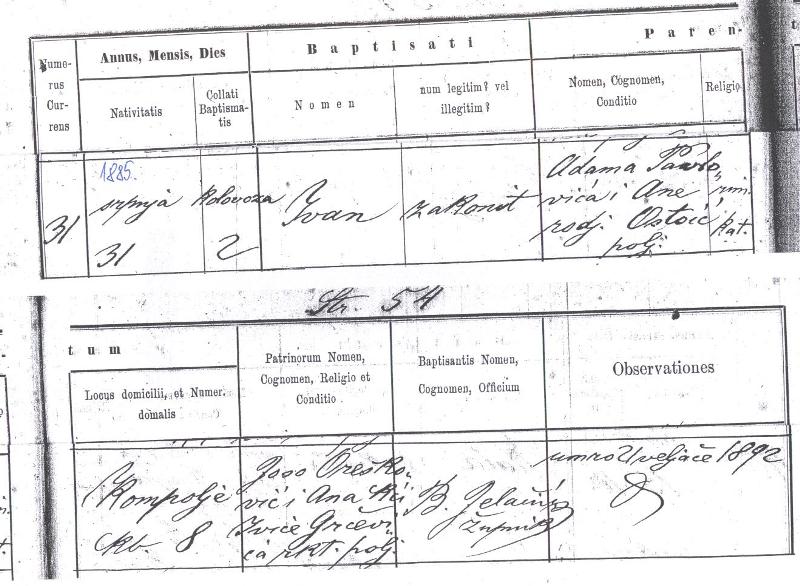 Nume-
rus
Cur-
rens
Annus, Mensis, Dies
Nativitatis
Collati
Baptisma-
tis
Baptisati
Nomen
num legitim? vel
illegitim?
Paren-
Nomen, Cognomen,
Conditio
Religio
31
1885.
srpnja
31
kolovoza
2
Ivan
zakonit
Adama Pavlo„
vića i Ane
rodj. Ostoić
polj.
rim.
kat.
Str. 54
tum
Locus domicilii, et Numer.
domalis
Patrinorum Nomen,
Cognomen, Religio et
Conditio
Baptisantis Nomen,
Cognomen, Officium
Observationes
Kompolje
ckb. 8
Joso Oreško„
vić i Ana kći
Ivice Grčevi„
ća rkt. polj.
B. Jelačić
župnik
umro veljače 1892